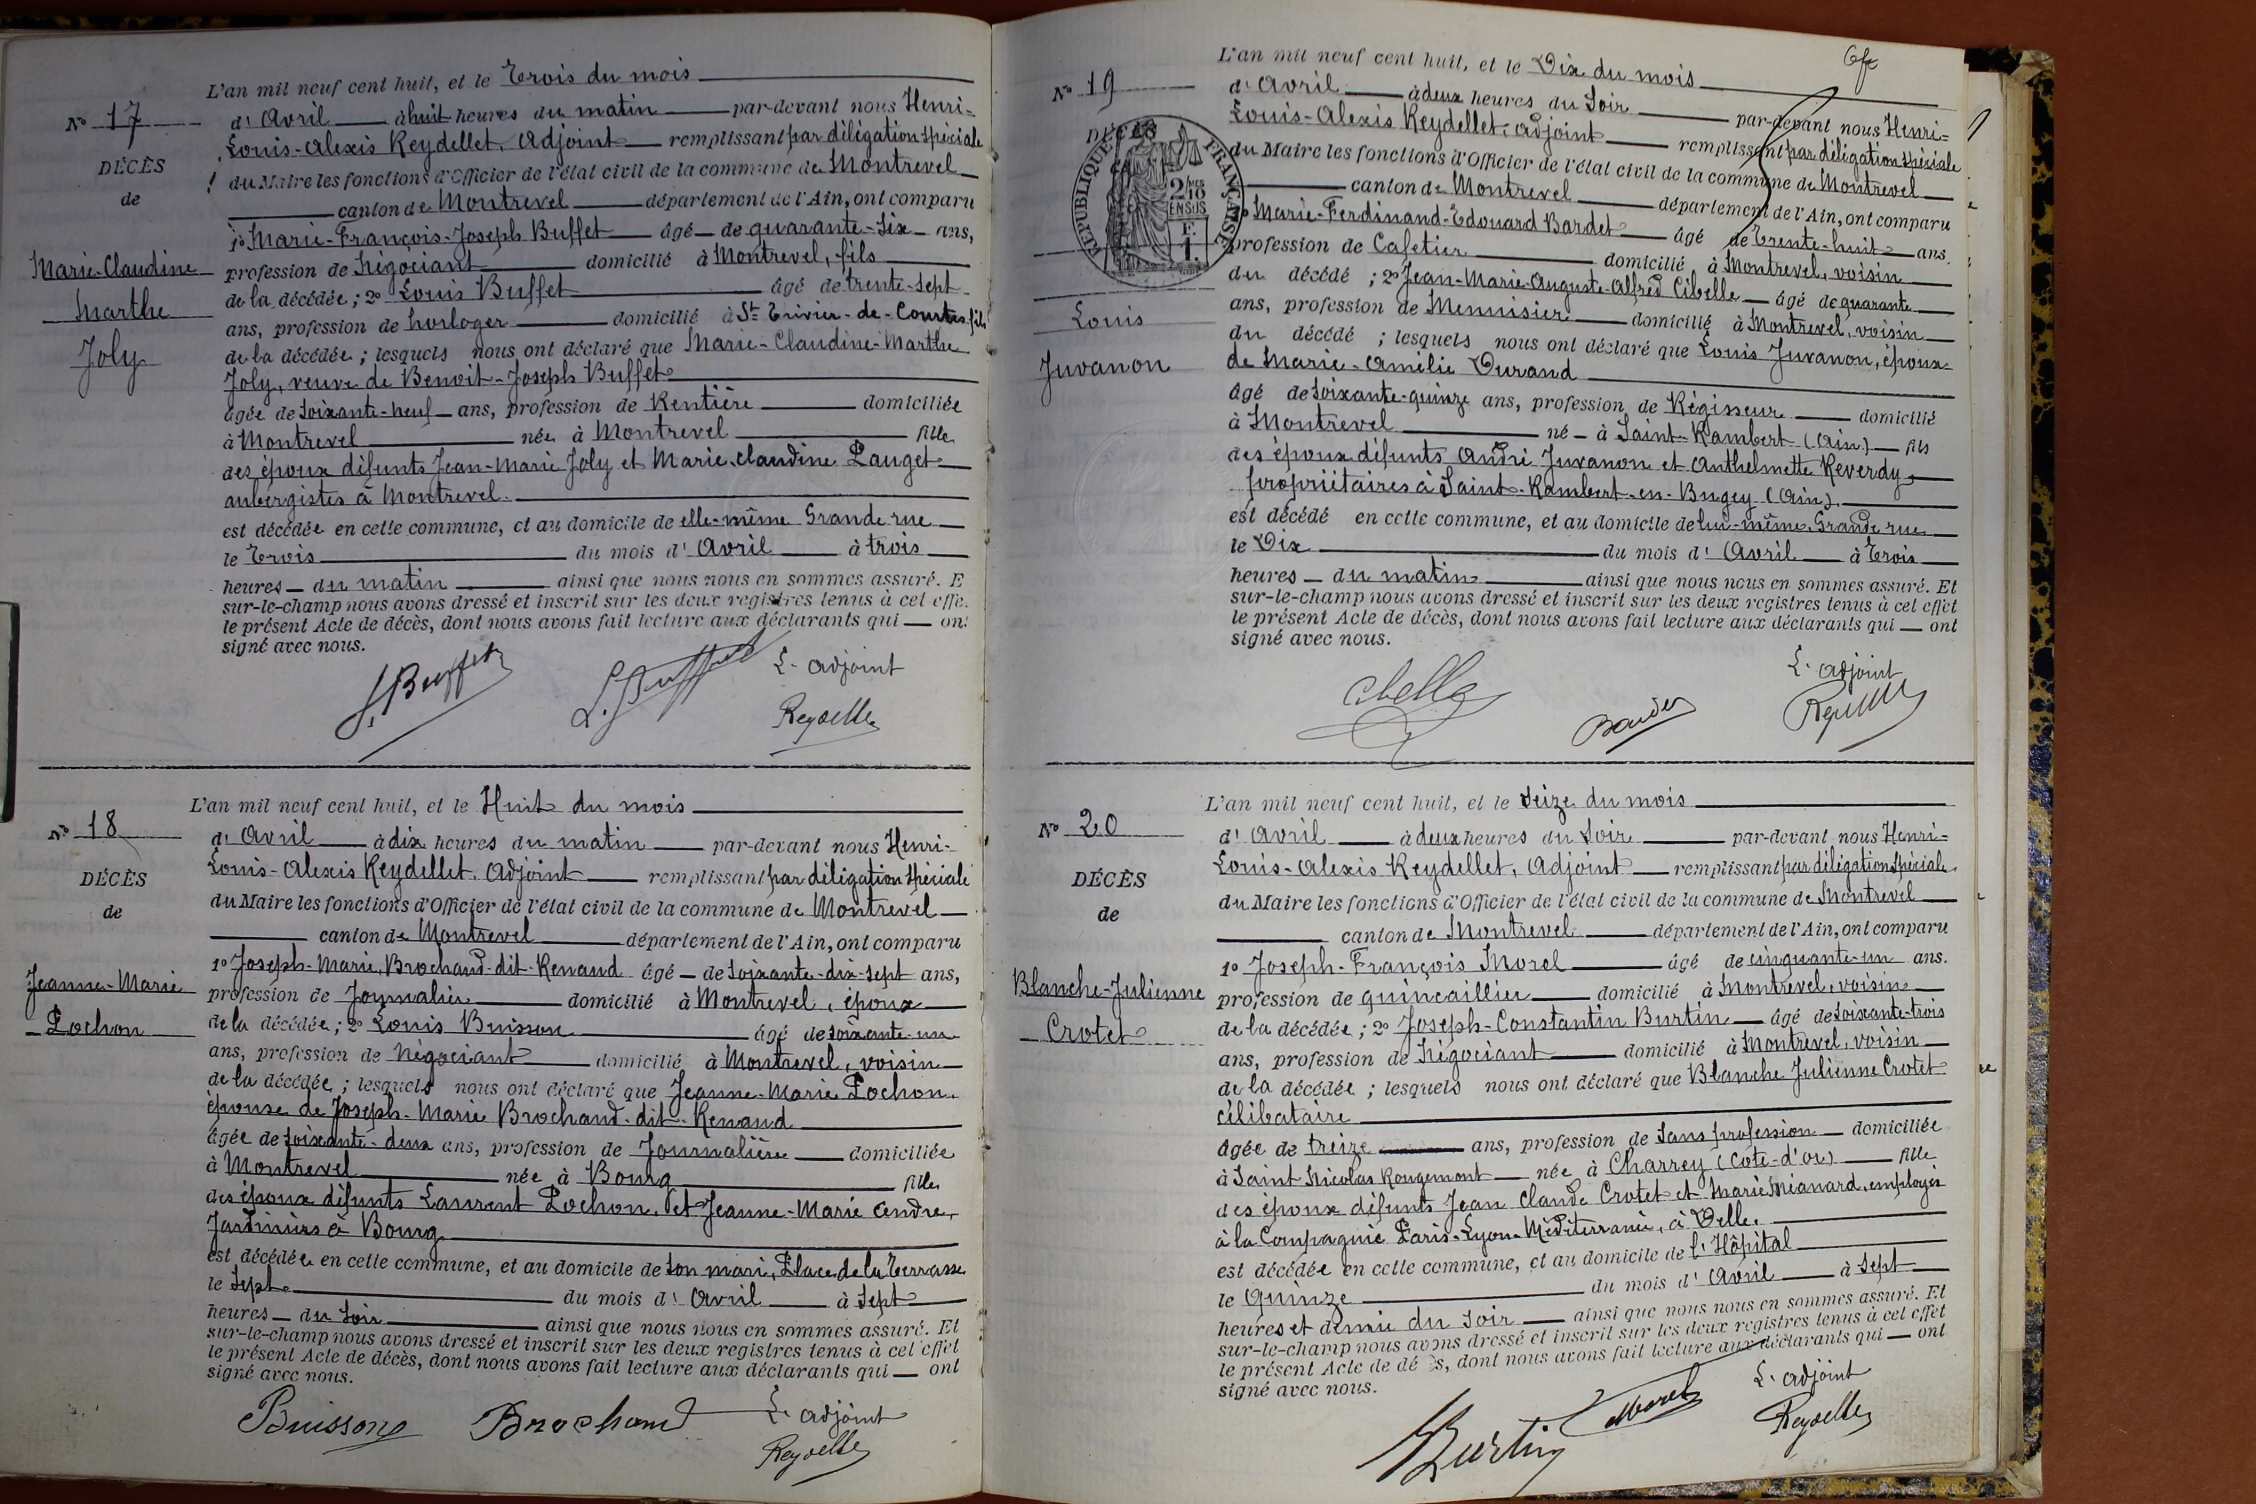 N° 17
DÉCÈS
de
Marie-Claudine
Marthe
Joly
L'an mil neuf cent huit, et le Trois du mois
d'Avril à huit heures du matin par-devant nous Henri-
Louis-Alexis Reydellet, Adjoint remplissant par déligation spéciale
du Maire les fonctions d'Officier de l'état civil de la commune de Montrevel
canton de Montrevel département de l'Ain, ont comparu
1° Marie-François-Joseph Buffet âgé de quarante-six ans,
profession de Négociant domicilié à Montrevel, fils
de la décédée ; 2° Louis Buffet âgé de trente-sept
ans, profession de horloger domicilié à St Trivier-de-Courtes, fils
de la décédée ; lesquels nous ont déclaré que Marie-Claudine-Marthe
Joly, veuve de Benoit-Joseph Buffet
âgée de soixante-neuf ans, profession de Rentière domiciliée
à Montrevel née à Montrevel fille
des époux défunts Jean-Marie Joly et Marie Claudine Pauget
aubergistes à Montrevel.
est décédée en cette commune, et au domicile de elle-même Grande rue
le Trois du mois d'Avril à trois
heures du matin ainsi que nous nous en sommes assuré. E
sur-le-champ nous avons dressé et inscrit sur les deux registres tenus à cet effe
le présent Acte de décès, dont nous avons fait lecture aux déclarants qui ont
signé avec nous.
J. Buffet L. Buffet L'adjoint
Reydellet
N° 18
DÉCÈS
de
Jeanne-Marie
Pochon
L'an mil neuf cent huit, et le Huit du mois
d'Avril à dix heures du matin par-devant nous Henri-
Louis-Alexis Reydellet, Adjoint remplissant par déligation spéciale
du Maire les fonctions d'Officier de l'état civil de la commune de Montrevel
canton de Montrevel département de l'Ain, ont comparu
1° Joseph-Marie Brochand-dit-Renaud âgé de soixante-dix-sept ans,
profession de Journalier domicilié à Montrevel, époux
de la décédée ; 2° Louis Buisson âgé de soixante-un
ans, profession de Négociant domicilié à Montrevel, voisin
de la décédée ; lesquels nous ont déclaré que Jeanne-Marie Pochon,
épouse de Joseph-Marie Brochand-dit-Renaud
âgée de soixante-deux ans, profession de Journalière domiciliée
à Montrevel née à Bourg fille
des époux défunts Laurent Pochon et Jeanne-Marie Andre,
Jardiniers à Bourg
est décédée en cette commune, et au domicile de son mari, Place de la Terrasse
le Sept du mois d'Avril à Sept
heures du soir ainsi que nous nous en sommes assuré. Et
sur-le-champ nous avons dressé et inscrit sur les deux registres tenus à cet effet
le présent Acte de décès, dont nous avons fait lecture aux déclarants qui ont
signé avec nous.
Buisson Brochand L'adjoint
Reydellet
N° 19
DÉCÈS
RÉPUBLIQUE FRANÇAISE
2/10 EN SUS
F. 1.
Louis
Juvanon
L'an mil neuf cent huit, et le Dix du mois
d'Avril à deux heures du Soir par-devant nous Henri-
Louis-Alexis Reydellet, adjoint remplissant par déligation spéciale
du Maire les fonctions d'Officier de l'état civil de la commune de Montrevel
canton de Montrevel département de l'Ain, ont comparu
1° Marie-Ferdinand-Edouard Bardet âgé de Trente-huit ans.
profession de Cafetier domicilié à Montrevel, voisin
du décédé ; 2° Jean-Marie-Auguste-Alfred Cibelle âgé de quarante
ans, profession de Menuisier domicilié à Montrevel, voisin
du décédé ; lesquels nous ont déclaré que Louis Juvanon, époux
de Marie-Amélie Durand
âgé de soixante-quinze ans, profession de Régisseur domicilié
à Montrevel né à Saint-Rambert (Ain) fils
des époux défunts André Juvanon et Anthelmette Reverdy,
propriétaires à Saint-Rambert-en-Bugey (Ain).
est décédé en cette commune, et au domicile de lui-même, Grande rue
le Dix du mois d'Avril à Trois
heures du matin ainsi que nous nous en sommes assuré. Et
sur-le-champ nous avons dressé et inscrit sur les deux registres tenus à cet effet
le présent Acte de décès, dont nous avons fait lecture aux déclarants qui ont
signé avec nous.
Cibelle Bardet L'adjoint
Reydellet
N° 20
DÉCÈS
de
Blanche-Julienne
Crotet
L'an mil neuf cent huit, et le Seize du mois
d'Avril à deux heures du Soir par-devant nous Henri-
Louis-Alexis Reydellet, Adjoint remplissant par déligation spéciale
du Maire les fonctions d'Officier de l'état civil de la commune de Montrevel
canton de Montrevel département de l'Ain, ont comparu
1° Joseph-François Morel âgé de cinquante-un ans.
profession de quincaillier domicilié à Montrevel, voisin
de la décédée ; 2° Joseph-Constantin Burtin âgé de soixante-trois
ans, profession de Négociant domicilié à Montrevel, voisin
de la décédée ; lesquels nous ont déclaré que Blanche Julienne Crotet
célibataire
âgée de treize ans, profession de Sans profession domiciliée
à Saint Nicolas Rougemont née à Charrey (Côte-d'or) fille
des époux défunts Jean Claude Crotet et Marie Mianard, employés
à la Compagnie Paris-Lyon-Méditerranée, à Velle.
est décédée en cette commune, et au domicile de l'Hôpital
le Quinze du mois d'Avril à Sept
heures et demie du Soir ainsi que nous nous en sommes assuré. Et
sur-le-champ nous avons dressé et inscrit sur les deux registres tenus à cet effet
le présent Acte de décès, dont nous avons fait lecture aux déclarants qui ont
signé avec nous.
Burtin Morel L'adjoint
Reydellet